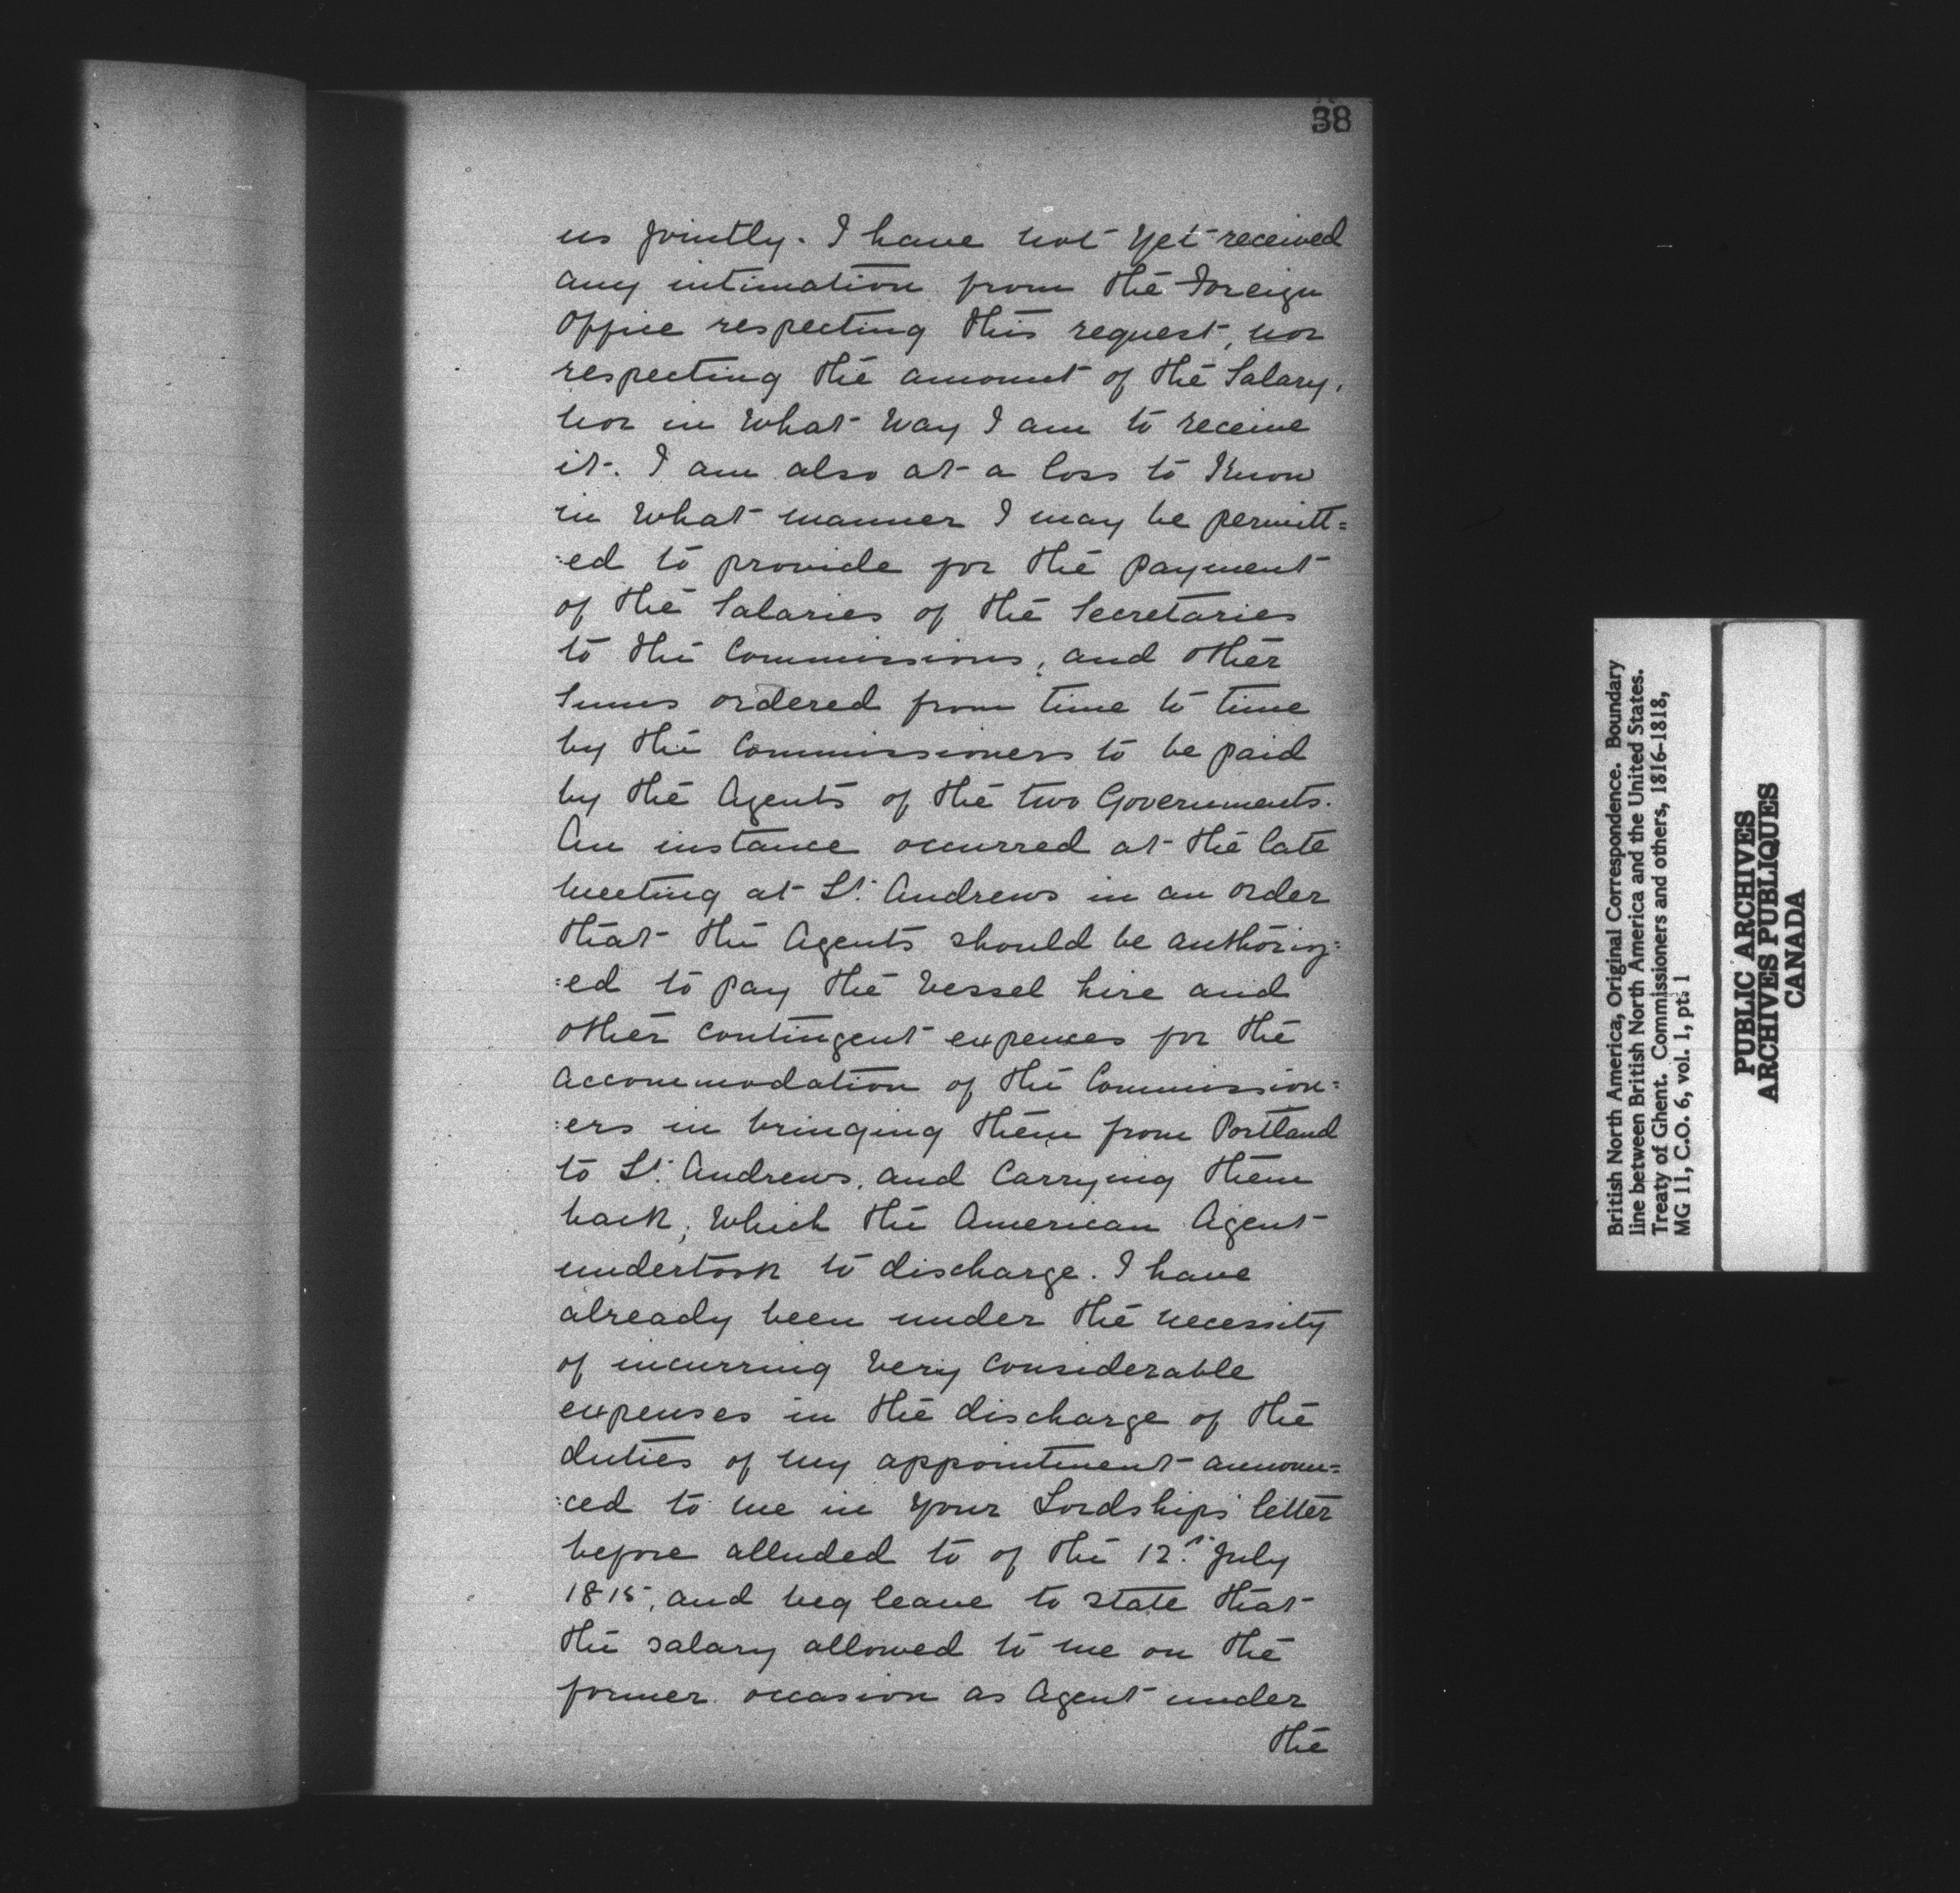 38
us jointly. I have not yet received
any intimation from the Foreign
Office respecting this request, nor
respecting the amount of the Salary,
nor in what way I am to receive
it. I am also at a loss to Know
in what manner I may be permitt=
:ed to provide for the payment
of the Salaries of the Secretaries
to the Commissions, and other
Sums ordered from time to time
by the Commissioners to be paid
by the Agents of the two Governments.
An instance occurred at the late
meeting at St. Andrews in an order
that the Agents should be authoriz:
:ed to pay the Vessel hire and
other contingent expences for the
accommodation of the Commission:
:ers in bringing them from Portland
to St. Andrews, and Carrying them
back, which the American Agent
undertook to discharge. I have
already been under the necessity
of incurring very considerable
expenses in the discharge of the
duties of my appointment announ=
:ced to me in Your Lordships' letter
before alluded to of the 12.th July
1815, and beg leave to state that
the salary allowed to me on the
former occasion as Agent under
the
British North America, Original Correspondence. Boundary
line between British North America and the United States.
Treaty of Ghent. Commissioners and others, 1816-1818,
MG 11, C.O. 6, vol. 1, pt. 1
PUBLIC ARCHIVES
ARCHIVES PUBLIQUES
CANADA